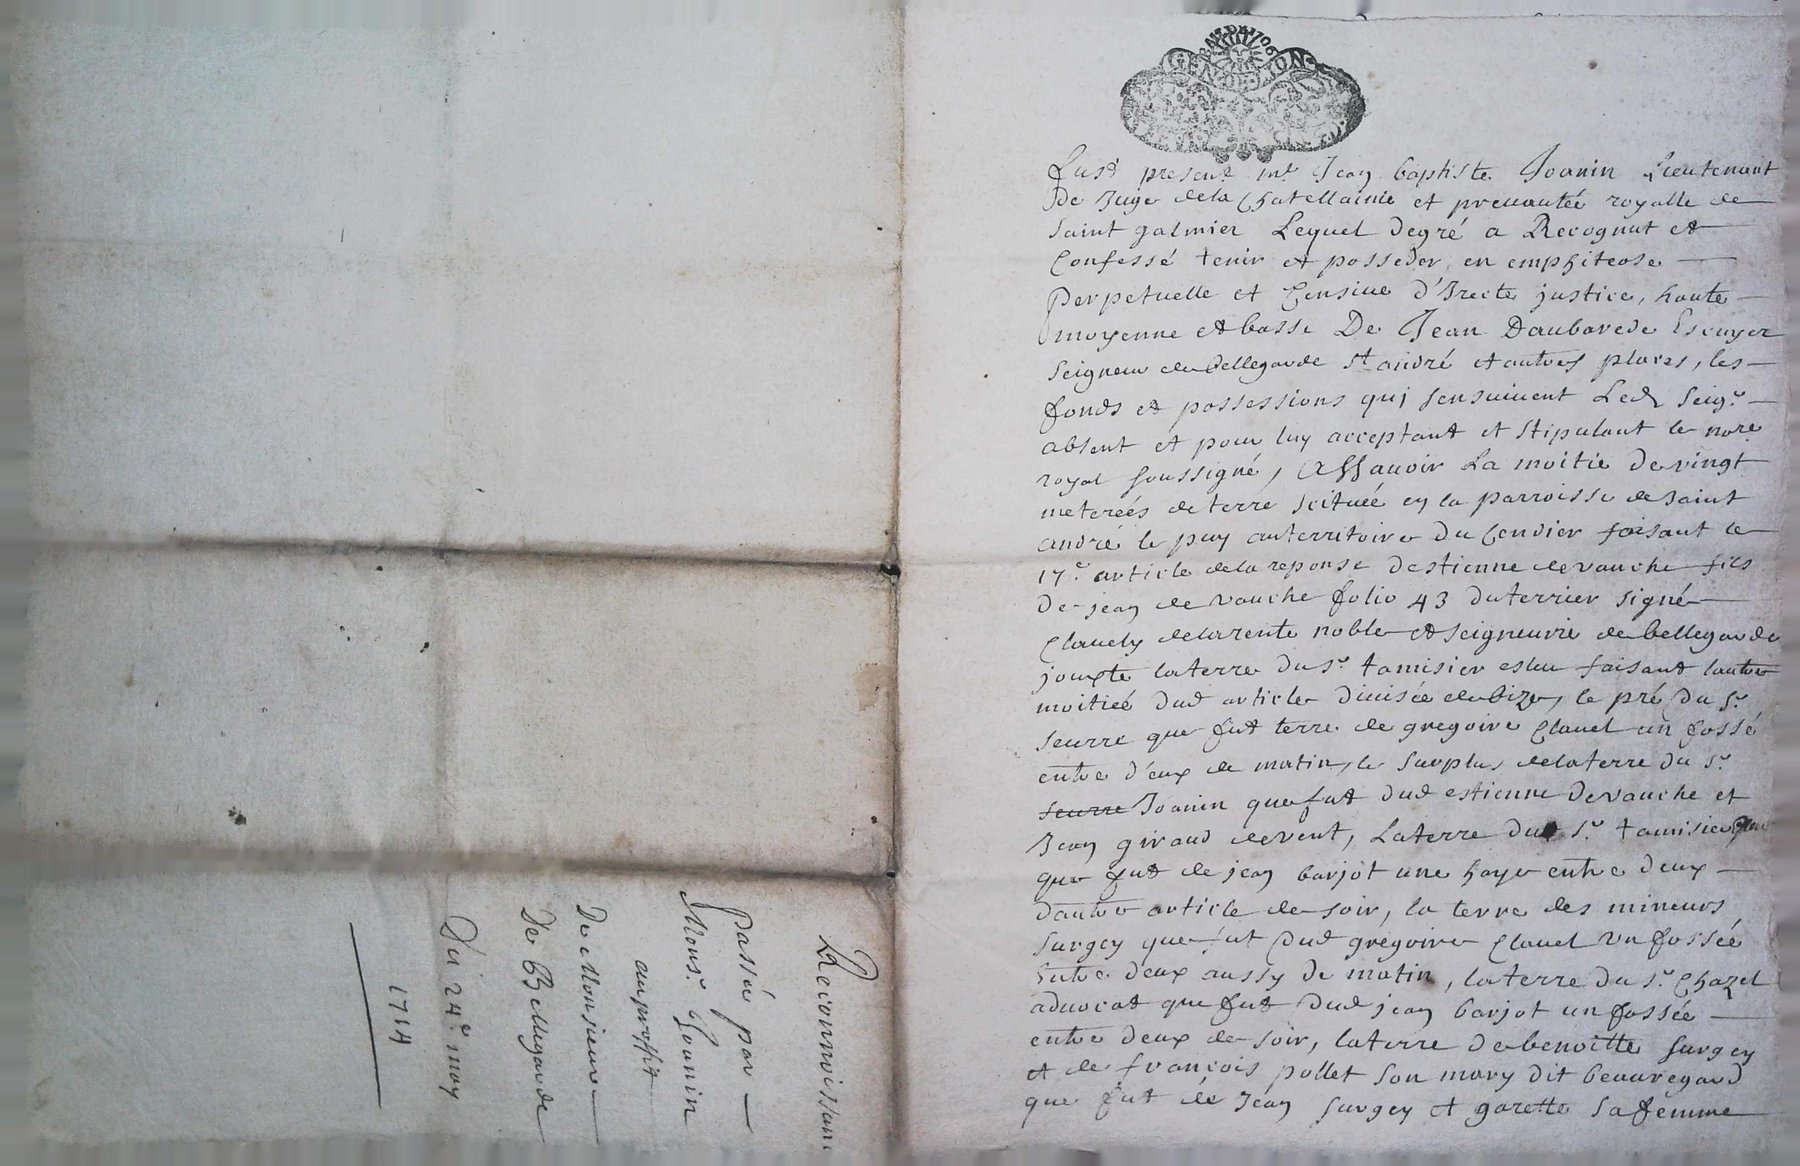 Reconnoissan
Passée par
Mons.r Joanin
au proffit
De Monsieur
De Bellegarde
Du 24.e may
1714
GEN DE LION
fust present m.e Jean baptiste Joanin Lieutenant
De Juge dela Chatellainie et preuautée royalle de
saint galmier Lequel Degré a Recognut et
Confessé tenir et posseder en emphiteose
Perpetuelle et Censiue d'Irecte justice, haute
moyenne et basse De Jean Daubarede Escuyer
seigneur de bellegarde st andré et autres places, les
fonds et possessions quj sensuiuent Led seig.r
absent et pour luy acceptant et stipulant le no.re
royal soussigné, assauoir La moitie de vingt
meterées de terre scituée en la parroisse de saint
andré le puy au territoire du Cendier faisant le
17.e article dela reponse destienne devauche fils
De jean de vauche folio 43 du terrier signé
Clauely dela rente noble et seigneurie de bellegarde
jouxte la terre du s.r tamisier esleu faisant lautre
moitieé dud article diuisée de bize, le pré du s.r
seurre que fut terre de gregoire Clauel un fossé
entre d'eux de matin, le surplus dela terre du s.r
seurre Joanin que fut dud estienne Devauche et
Jean giraud de vent, La terre du s.r tamisier
que fut de jean barjot une haye entre deux
dautre article de soir, la terre des mineurs
surgey que fut dud gregoire Clauel un fossée
entre deux aussy de matin, la terre du s.r Chazel
aduocat que fut dud jean barjot un fossée
entre deux de soir, la terre de benoitte surgey
et de françois pollet son mary dit beauregard
que fut de Jean surgey et garette sa femme